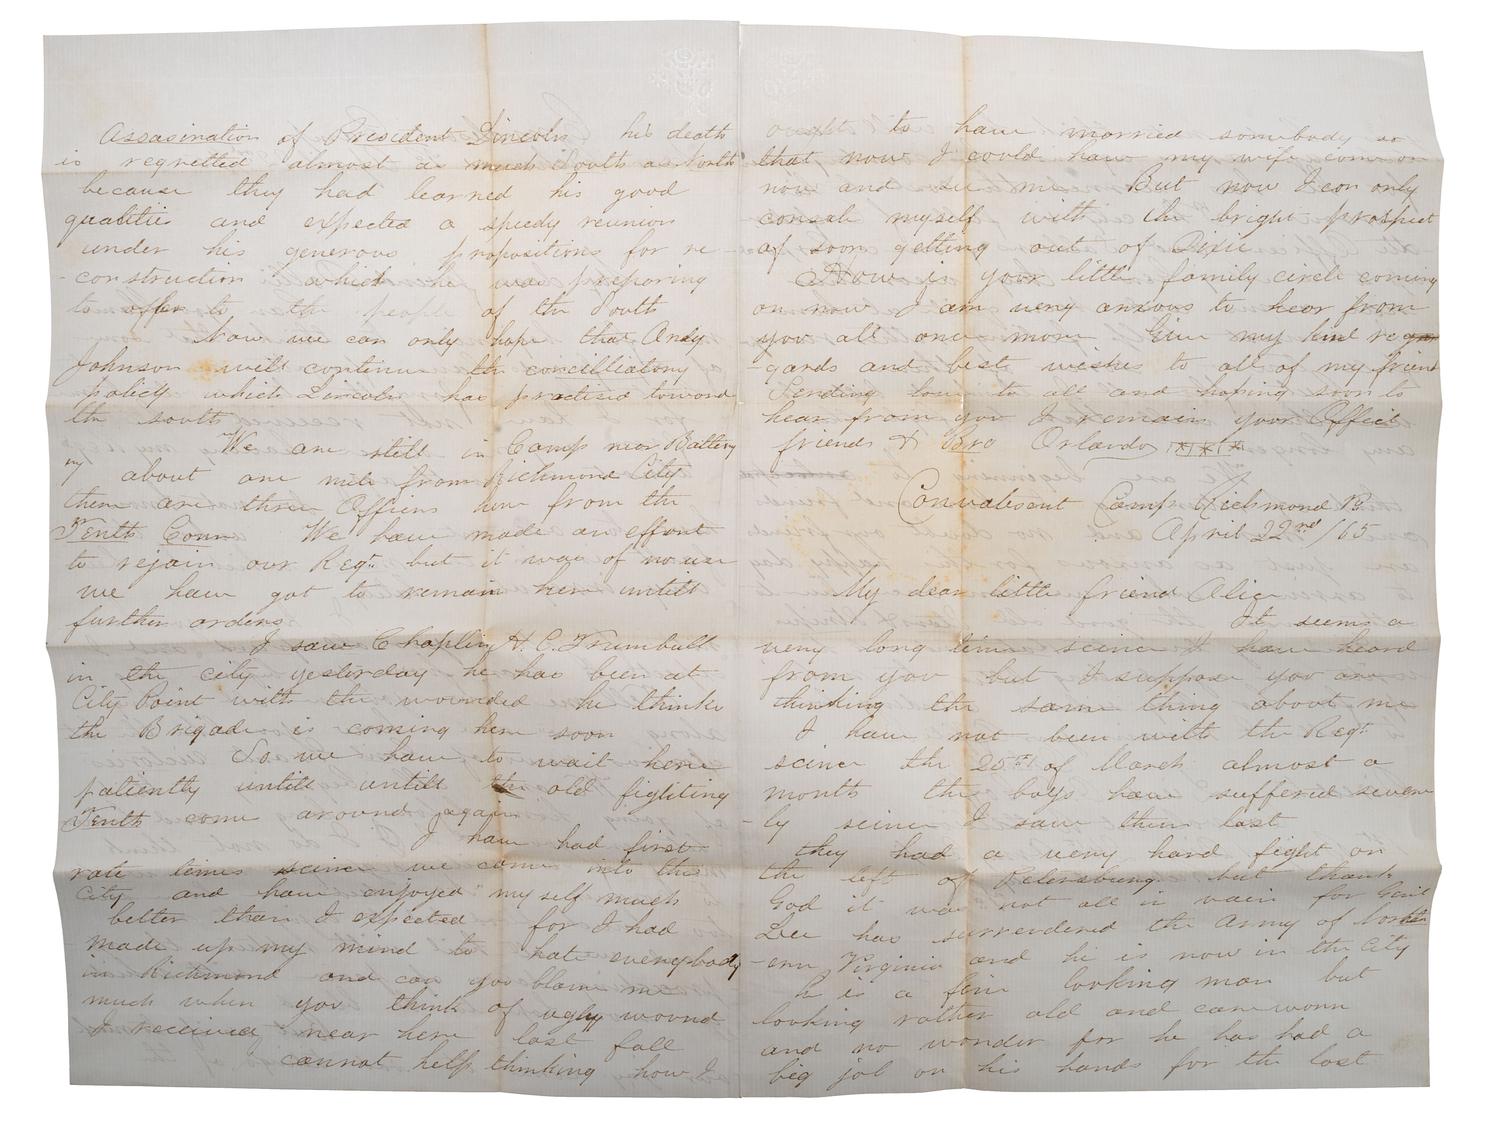 Assasination of President Lincoln his death
is regretted almost as much South as North
because they had learned his good
qualities and expected a speedy reunion
under his generous propositions for re-
-construction which he was preparing
to offer to the people of the South
Now we can only hope that Andy
Johnson will continue the concilliatory
policy which Lincoln has practised toward
the south
We are still in Camp near Battery
about one mile from Richmond City
there are three Officers here from the
Tenth Conn We have made an effort
to rejoin our Regt. but it was of no use
we have got to remain here untill
further orders
I saw Chaplin H. C. Trumbull
in the city yesterday he has been at
City Point with the wounded he thinks
the Brigade is coming here soon
So we have to wait here
patiently untill untill the old fighting
Tenth come around again
I have had first
rate times scince we came into this
City and have enjoyed myself much
better than I expected for I had
made up my mind to hate everybody
in Richmond and can you blame me
much when you think of ugly wound
I received near here last fall
I cannot help thinking how I
ought to have married somebody so
that now I could have my wife come on
now and see me But now I can only
consele myself with the bright prospect
of soon getting out of Dixie
How is your little family circle coming
on now I am very anxous to hear from
you all once more Give my kind re
-gards and best wishes to all of my friend
Sending love to all and hoping soon to
hear from you I remain your Affect
friend & Bro Orlando
Convalescent Camp Richmond Va
April 22nd /65
My dear little friend Alice
It seems a
very long time scince I have heard
from you but I suppose you are
thinking the same thing about me
I have not been with the Regt.
scince the 25th of March almost a
month the boys have suffered severe
-ly scince I saw them last
they had a very hard fight on
the left of Petersburg but thank
God it was not all in vain for Genl
Lee has surrendered the Army of North
-ern Virginia and he is now in the City
he is a fine looking man but
looking rather old and careworn
and no wonder for he has had a
big job on his hands for the last